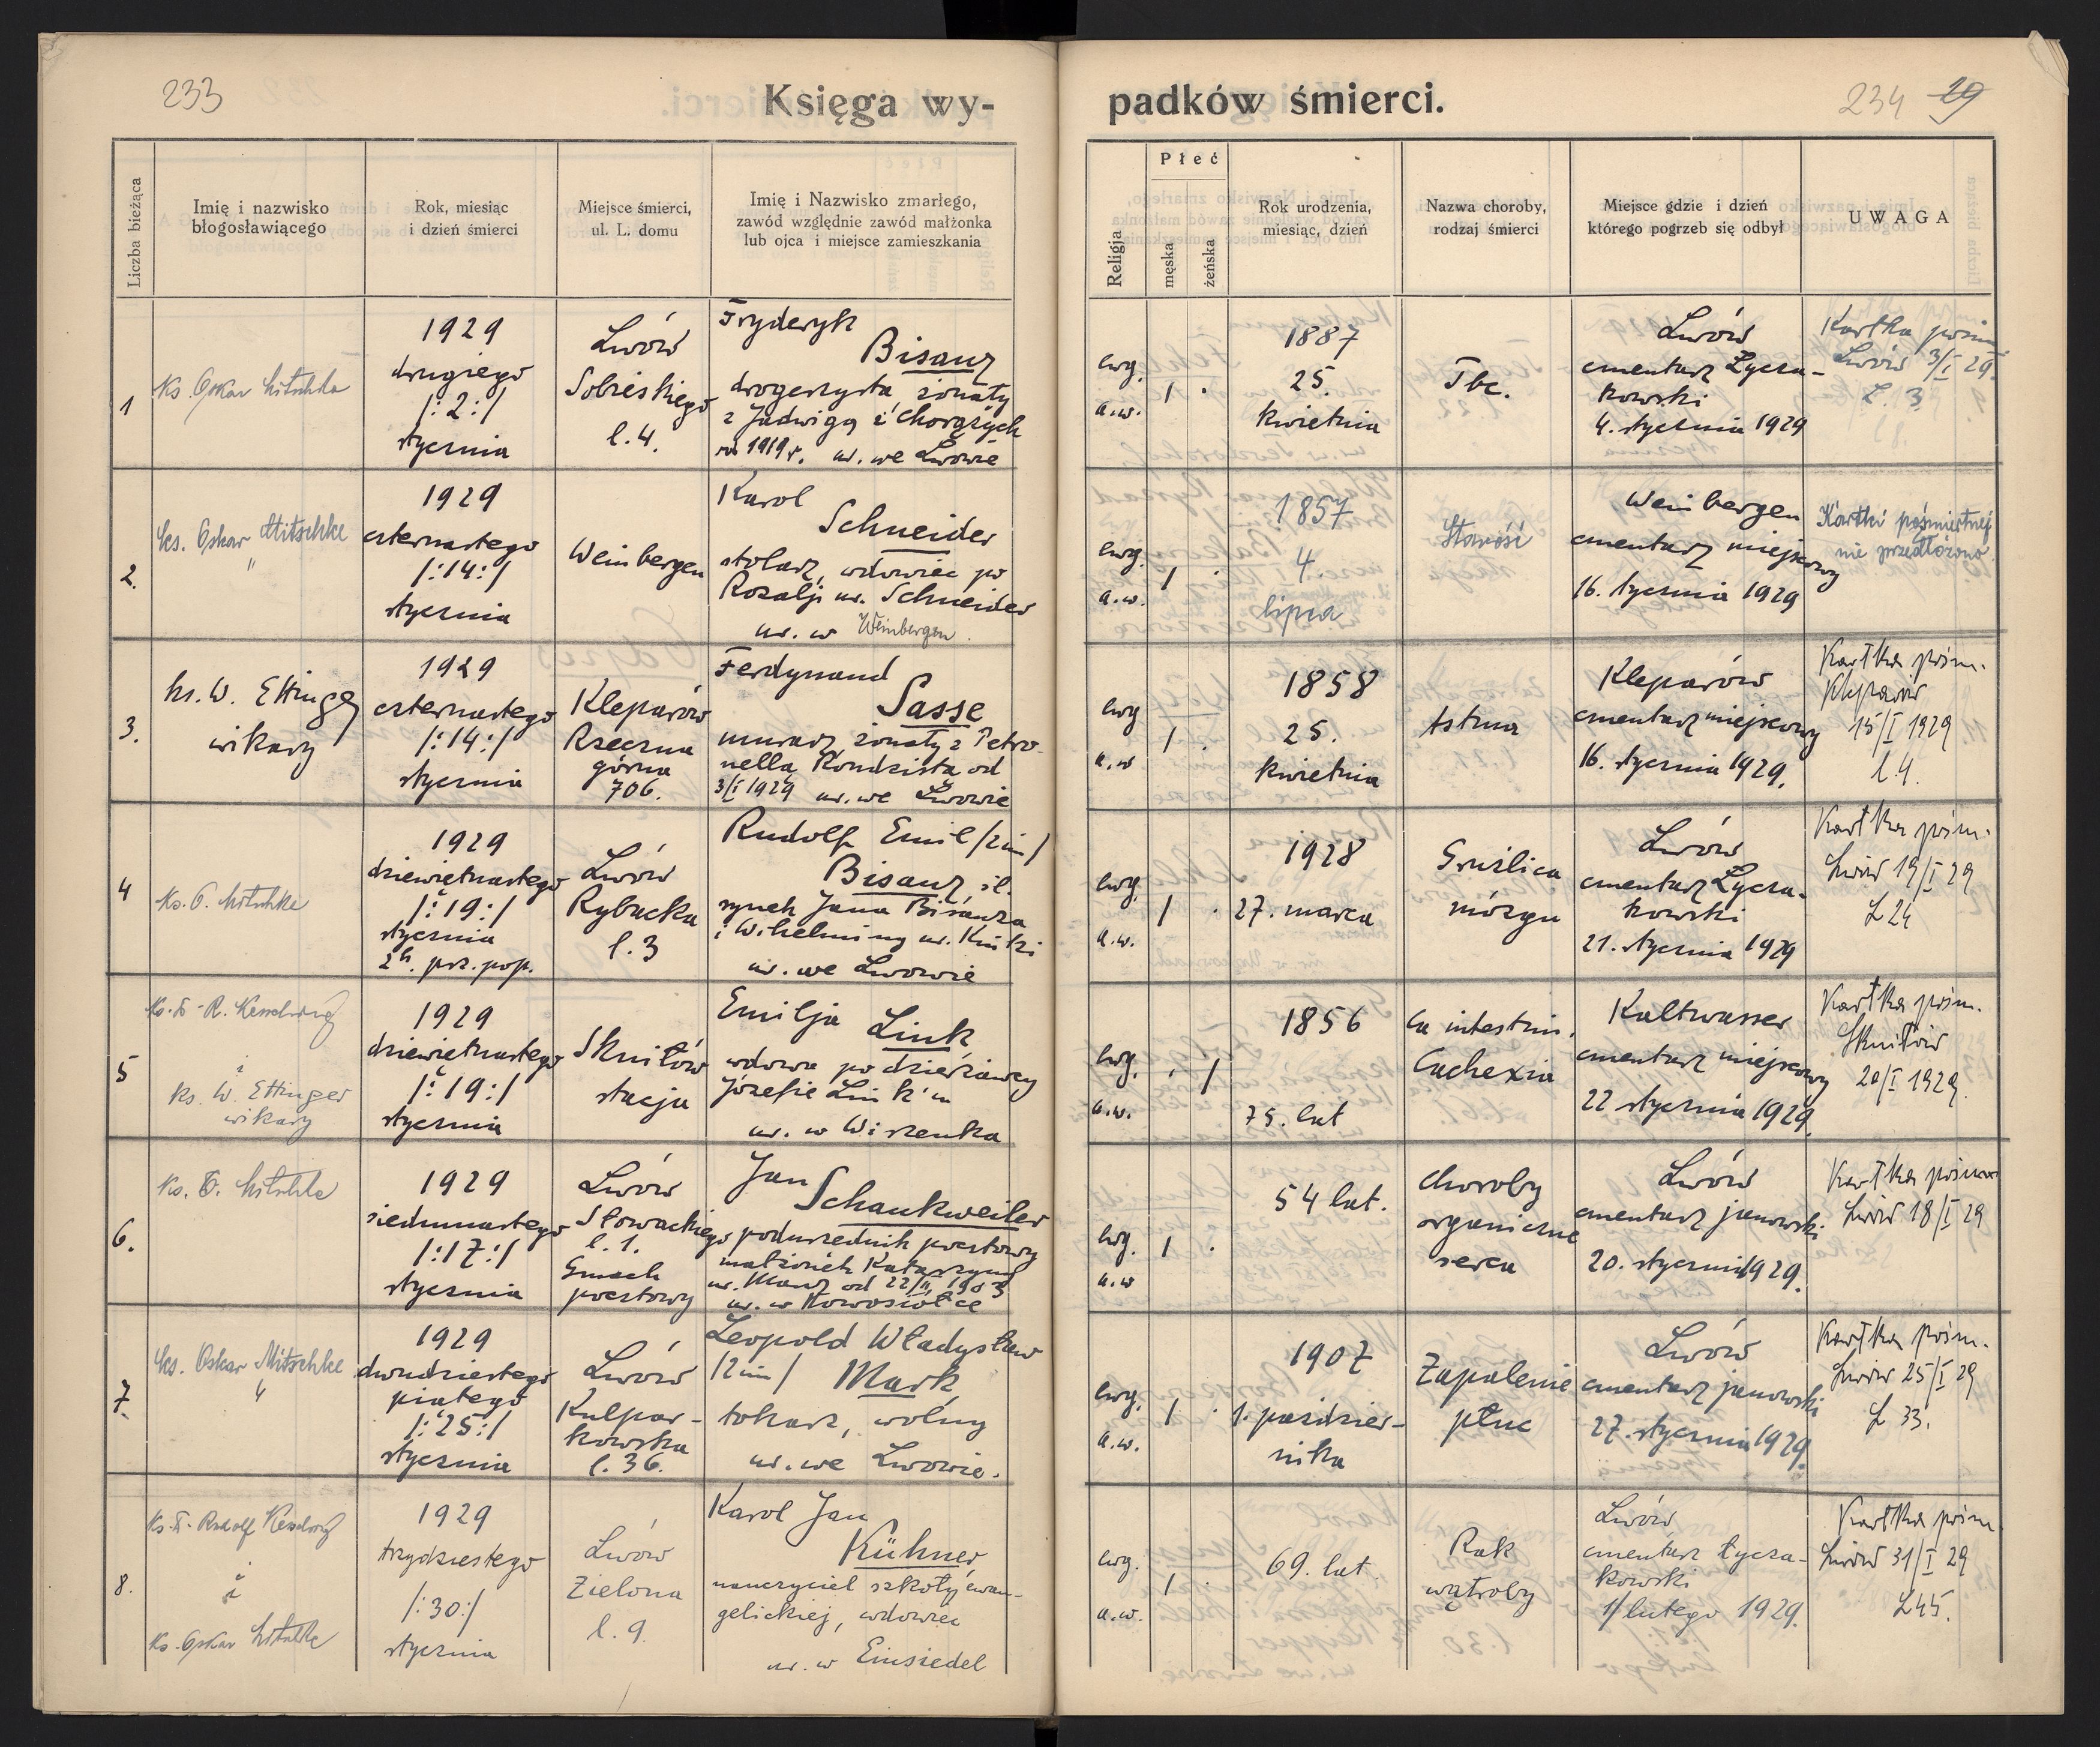 233
Księga wy-
padków śmierci.
234 29
Liczba bieżąca
Imię i nazwisko
błogosławiącego
Rok, miesiąc
i dzień śmierci
Miejsce śmierci,
ul. L. domu
Imię i Nazwisko zmarłego,
zawód względnie zawód małżonka
lub ojca i miejsce zamieszkania
Religja
Płeć
męska
żeńska
Rok urodzenia,
miesiąc, dzień
Nazwa choroby,
rodzaj śmierci
Miejsce gdzie i dzień
którego pogrzeb się odbył
UWAGA
1
Ks. Oskar Mitschke
1929
drugiego
/:2:/
stycznia
Lwów
Sobieskiego
l. 4.
Fryderyk
Bisanz
drogerzysta, żonaty
z Jadwigą z Chorążych
od 1919 r. ur. we Lwowie
ewg.
a.w.
1887
25.
kwietnia
Tbc.
Lwów
cmentarz Łycza-
kowski
4. stycznia 1929
Kartka pośm.
Lwów 3/I 29.
L. 3
2.
Ks. Oskar Mitschke
"
1929
czternastego
/:14:/
stycznia
Weinbergen
Karol
Schneider
stolarz, wdowiec po
Rozalji ur. Schneider
ur. w Weinbergen.
ewg.
a.w.
1857
4.
lipca
Starość
Weinbergen
cmentarz miejscowy
16. stycznia 1929
Kartki pośmiertnej
nie przedłożono
3.
ks. W. Ettinger
wikary
1929
czternastego
/:14:/
stycznia
Kleparów
Rzeczna
górna
706.
Ferdynand
Sasse
murarz, żonaty z Petro-
nellą Rondzista od
3/I 1929 ur. we Lwowie
ewg
a.w
1858
25.
kwietnia
Astma
Kleparów
cmentarz miejscowy
16. stycznia 1929.
Kartka pośm.
Kleparów
15/I 1929
l. 4.
4
Ks. O. Mitschke
1929
dziewiętnastego
/:19:/
stycznia
2h. prz. pop.
Lwów
Rybacka
l. 3
Rudolf Emil /2im/
Bisanz, śl.
synek Jana Bisanza
i Wilhelminy ur.
ur. we Lwowie
ewg.
a.w.
1928
27. marca
Gruźlica
mózgu
Lwów
cmentarz Łycza-
kowski
21. stycznia 1929
Kartka pośm.
Lwów 19/I 29
L 24
5
Ks. D. R. Kesselring
i
Ks. W. Ettinger
wikary
1929
dziewiętnastego
/:19:/
stycznia
Skniłów
stacja
Emilja Link
wdowa po dzierżawcy
Józefie Link'u
ur. w Wiszenka
ewg.
a.w.
1856
75. lat
Ca intestin.
Cachexia
Kaltwasser
cmentarz miejscowy
22 stycznia 1929.
Kartka pośm.
Skniłów
20/I 1929.
6.
Ks. O. Mitschke
1929
siedmnastego
/:17:/
stycznia
Lwów
Słowackiego
l. 1.
Gmach
pocztowy
Jan
Schankweiler
podurzędnik pocztowy
małżonek Katarzyny
ur. Manz od 22/II 1903
ur. w Nowosiółce
ewg.
a.w
54 lat.
choroby
organiczne
serca
Lwów
cmentarz janowski
20. stycznia 1929.
Kartka pośm.
Lwów 18/I 29
7.
Ks. Oskar Mitschke
"
1929
dwudziestego
piątego
/:25:/
stycznia
Lwów
Kulpar-
kowska
l. 36.
Leopold Władysław
/2im/ Mark
tokarz, wolny
ur. we Lwowie.
ewg.
a.w.
1907
1. paździer-
nika
Zapalenie
płuc
Lwów
cmentarz janowski
27. stycznia 1929.
Kartka pośm.
Lwów 25/I 29
L 33.
8.
Ks. D. Rudolf Kesselring
i
Ks. Oskar Mitschke
1929
trzydziestego
/:30:/
stycznia
Lwów
Zielona
l. 9.
Karol Jan
Kühner
nauczyciel szkoły ewan-
gelickiej, wdowiec
ur. w Einsiedel
ewg.
a.w.
69. lat.
Rak
wątroby
Lwów
cmentarz Łycza-
kowski
1/ lutego 1929.
Kartka pośm.
Lwów 31/I 29
L 45.